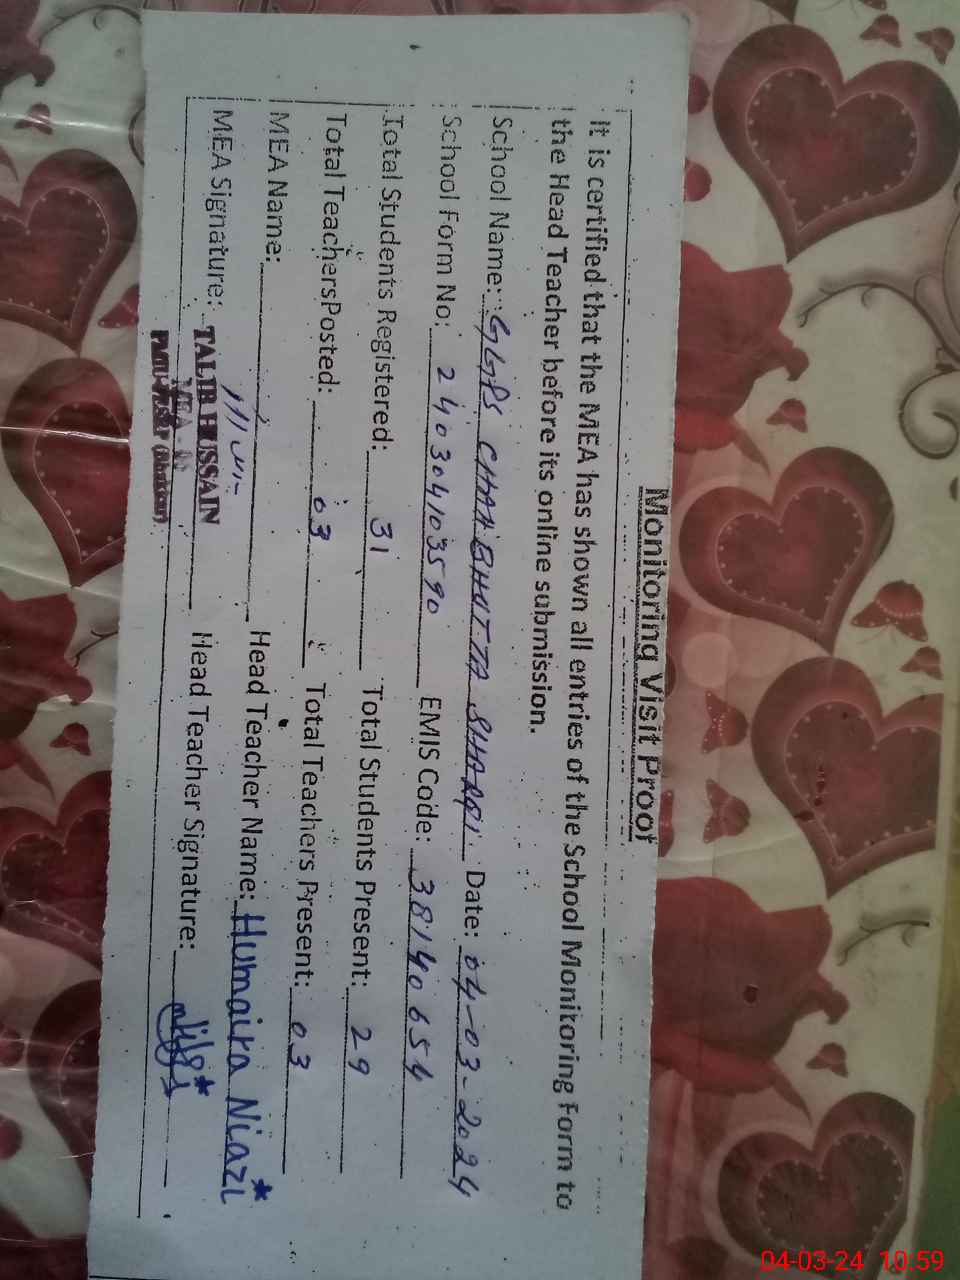 Monitoring Visit Proof
It is certified that the MEA has shown all entries of the School Monitoring Form to
the Head Teacher before its online submission.
School Name: GGPS CHAH BHUTTA SHARQI Date: 04-03-2024
School Form No: 240304103590 EMIS Code: 38140654
Total Students Registered: 31 Total Students Present: 29
Total Teachers Posted: 03 Total Teachers Present: 03
MEA Name: Head Teacher Name: Humaira Niazi
MEA Signature: Head Teacher Signature:
TALIB HUSSAIN
MEA
04-03-24 10:59